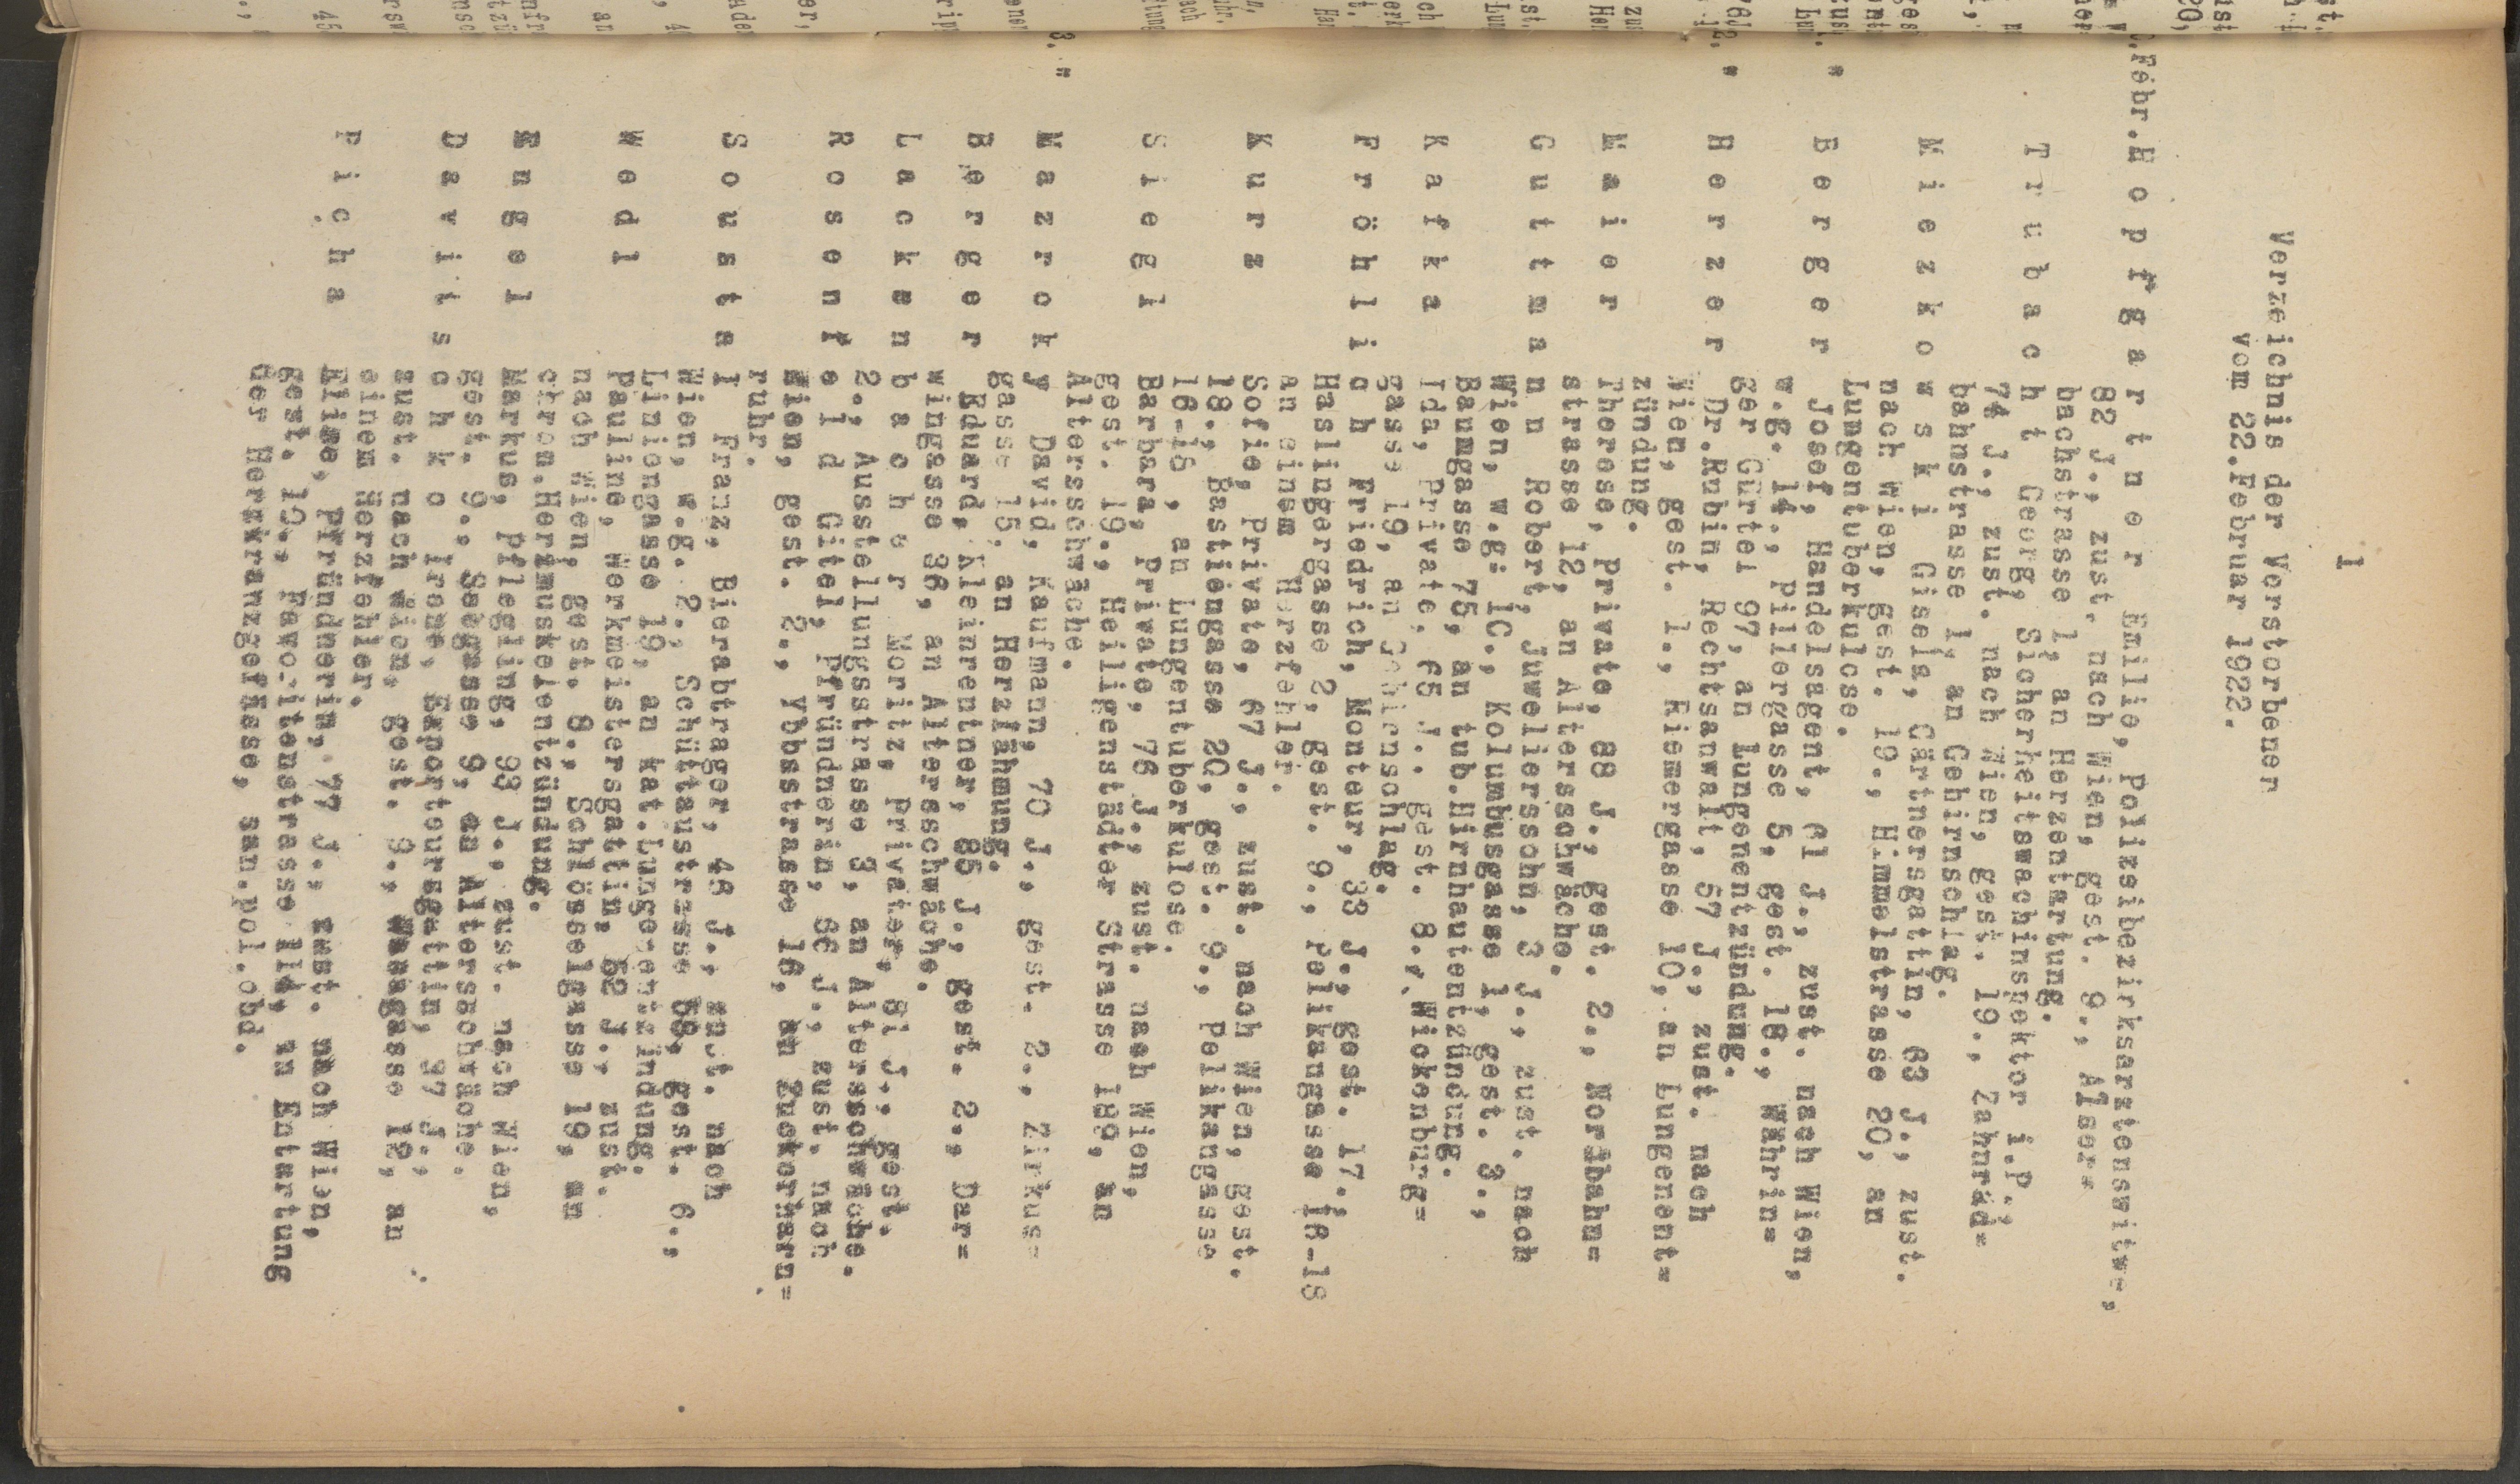 1
Verzeichnis der Verstorbenen
vom 22.Februar 1922.
.Febr.H o p f g a r t n e r Emilie, Polizeibezirksarztenswitwe,
82 J., zust. nach Wien, gest. 9., Alser=
bachstrasse 1, an Herzentartung.
T r u b a c h t Georg, Sicherheitswachinspektor i.P.,
74 J., zust. nach Wien, gest. 19., Zahnrad=
bahnstrasse 1, an Gehirnschlag.
M i e z k o w s k i Gisela, Gärtnersgattin, 63 J., zust.
nach Wien, gest. 19., Himmelstrasse 20, an
Lungentuberkulose.
" B e r g e r Josef, Handelsagent, 61 J., zust. nach Wien,
w.g. 14., Pillergasse 5, gest. 18., Währin=
ger Gürtel 97, an Lungenentzündung.
" H e r z e r Dr.Rubin, Rechtsanwalt, 57 J., zust. nach
Wien, gest. 1., Riemergasse 10, an Lungenent=
zündung.
M a i e r Therese, Private, 88 J., gest. 2., Nordbahn=
strasse 12, an Altersschwäche.
G u t t m a n n Robert, Juwelierssohn, 3 J., zust. nach
Wien, w.g. 10., Kolumbusgasse 1, gest. 3.,
Baumgasse 75, an tub.Hirnhautentzündung.
K a f k a Ida, Private, 65 J., gest. 8., Wickenburg=
gasse 19, an Gehirnschlag.
F r ö h l i c h Friedrich, Monteur, 33 J., gest. 17.,
Haslingergasse 2, gest. 9., Pelikangasse 16-18
an einem Herzfehler.
K u r z Sofie, Private, 67 J., zust. nach Wien, gest.
18., Bastiengasse 20, gest. 9., Pelikangasse
16-18 , an Lungentuberkulose.
S i e g l Barbara, Private, 76 J., zust. nach Wien,
gest. 19., Heiligenstädter Strasse 189, an
Altersschwäche.
3. " M a z r o k y David, Kaufmann, 70 J., gest. 2., Zirkus=
gasse 15, an Herzlähmung.
B e r g e r Eduard, Kleinrentner, 85 J., gest. 2., Dar=
wingasse 36, an Altersschwäche.
L a c k e n b a c h e r Moritz, Privater, 81 J., gest.
2., Ausstellungsstrasse 3, an Altersschwäche.
R o s e n f e l d Gitel, Pfründnerin, 66 J., zust. nach
Wien, gest. 2., Ybbsstrasse 16, an Zuckerharn=
ruhr.
S o u s t a l Franz, Bierabtrager, 48 J., zust. nach
Wien, w.g. 2., Schüttaustrasse 68, gest. 6.,
Liniengasse 19, an kat.Lungenentzündung.
W e d l Pauline, Werkmeistersgattin, 52 J., zust.
nach Wien, gest. 8., Schlösselgasse 19, an
chron.Herzmuskelentzündung.
K u g e l Markus, Pflegling, 93 J., zust. nach Wien,
gest. 9., Seegasse 9, an Altersschwäche.
D a v i t s c h k o Irene, Exporteursgattin, 37 J.,
zust. nach Wien, gest. 9., Wasagasse 12, an
einem Herzfehler.
P i c h a Elise, Pfründnerin, 77 J., zust. nach Wien,
gest. 10., Favoritenstrasse 114, an Entartung
der Herzkranzgefässe, san.pol.obd.